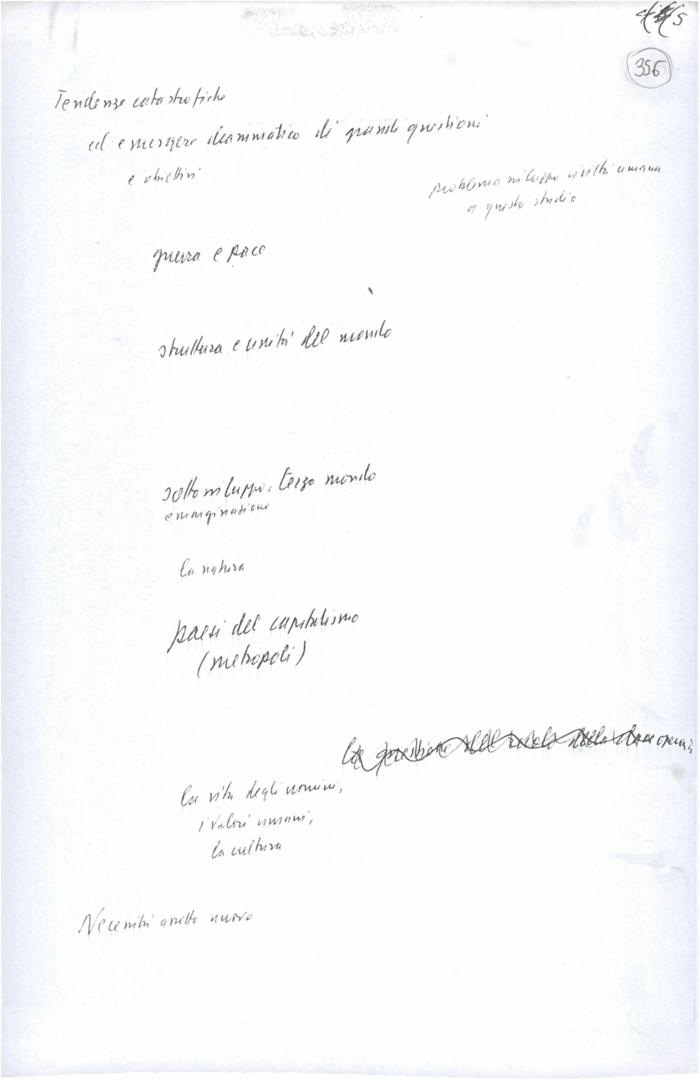 5
356
Tendenze catastrofiche
ed emergere drammatico di grandi questioni
e obiettivi
problema sviluppo civiltà umana
a questo stadio
guerra e pace
struttura e unità del mondo
sottosviluppo, terzo mondo
emarginazione
la natura
paesi del capitalismo
(metropoli)
la questione del ruolo della classe operaia
la vita degli uomini,
i valori umani,
la cultura
Necessità assetto nuovo